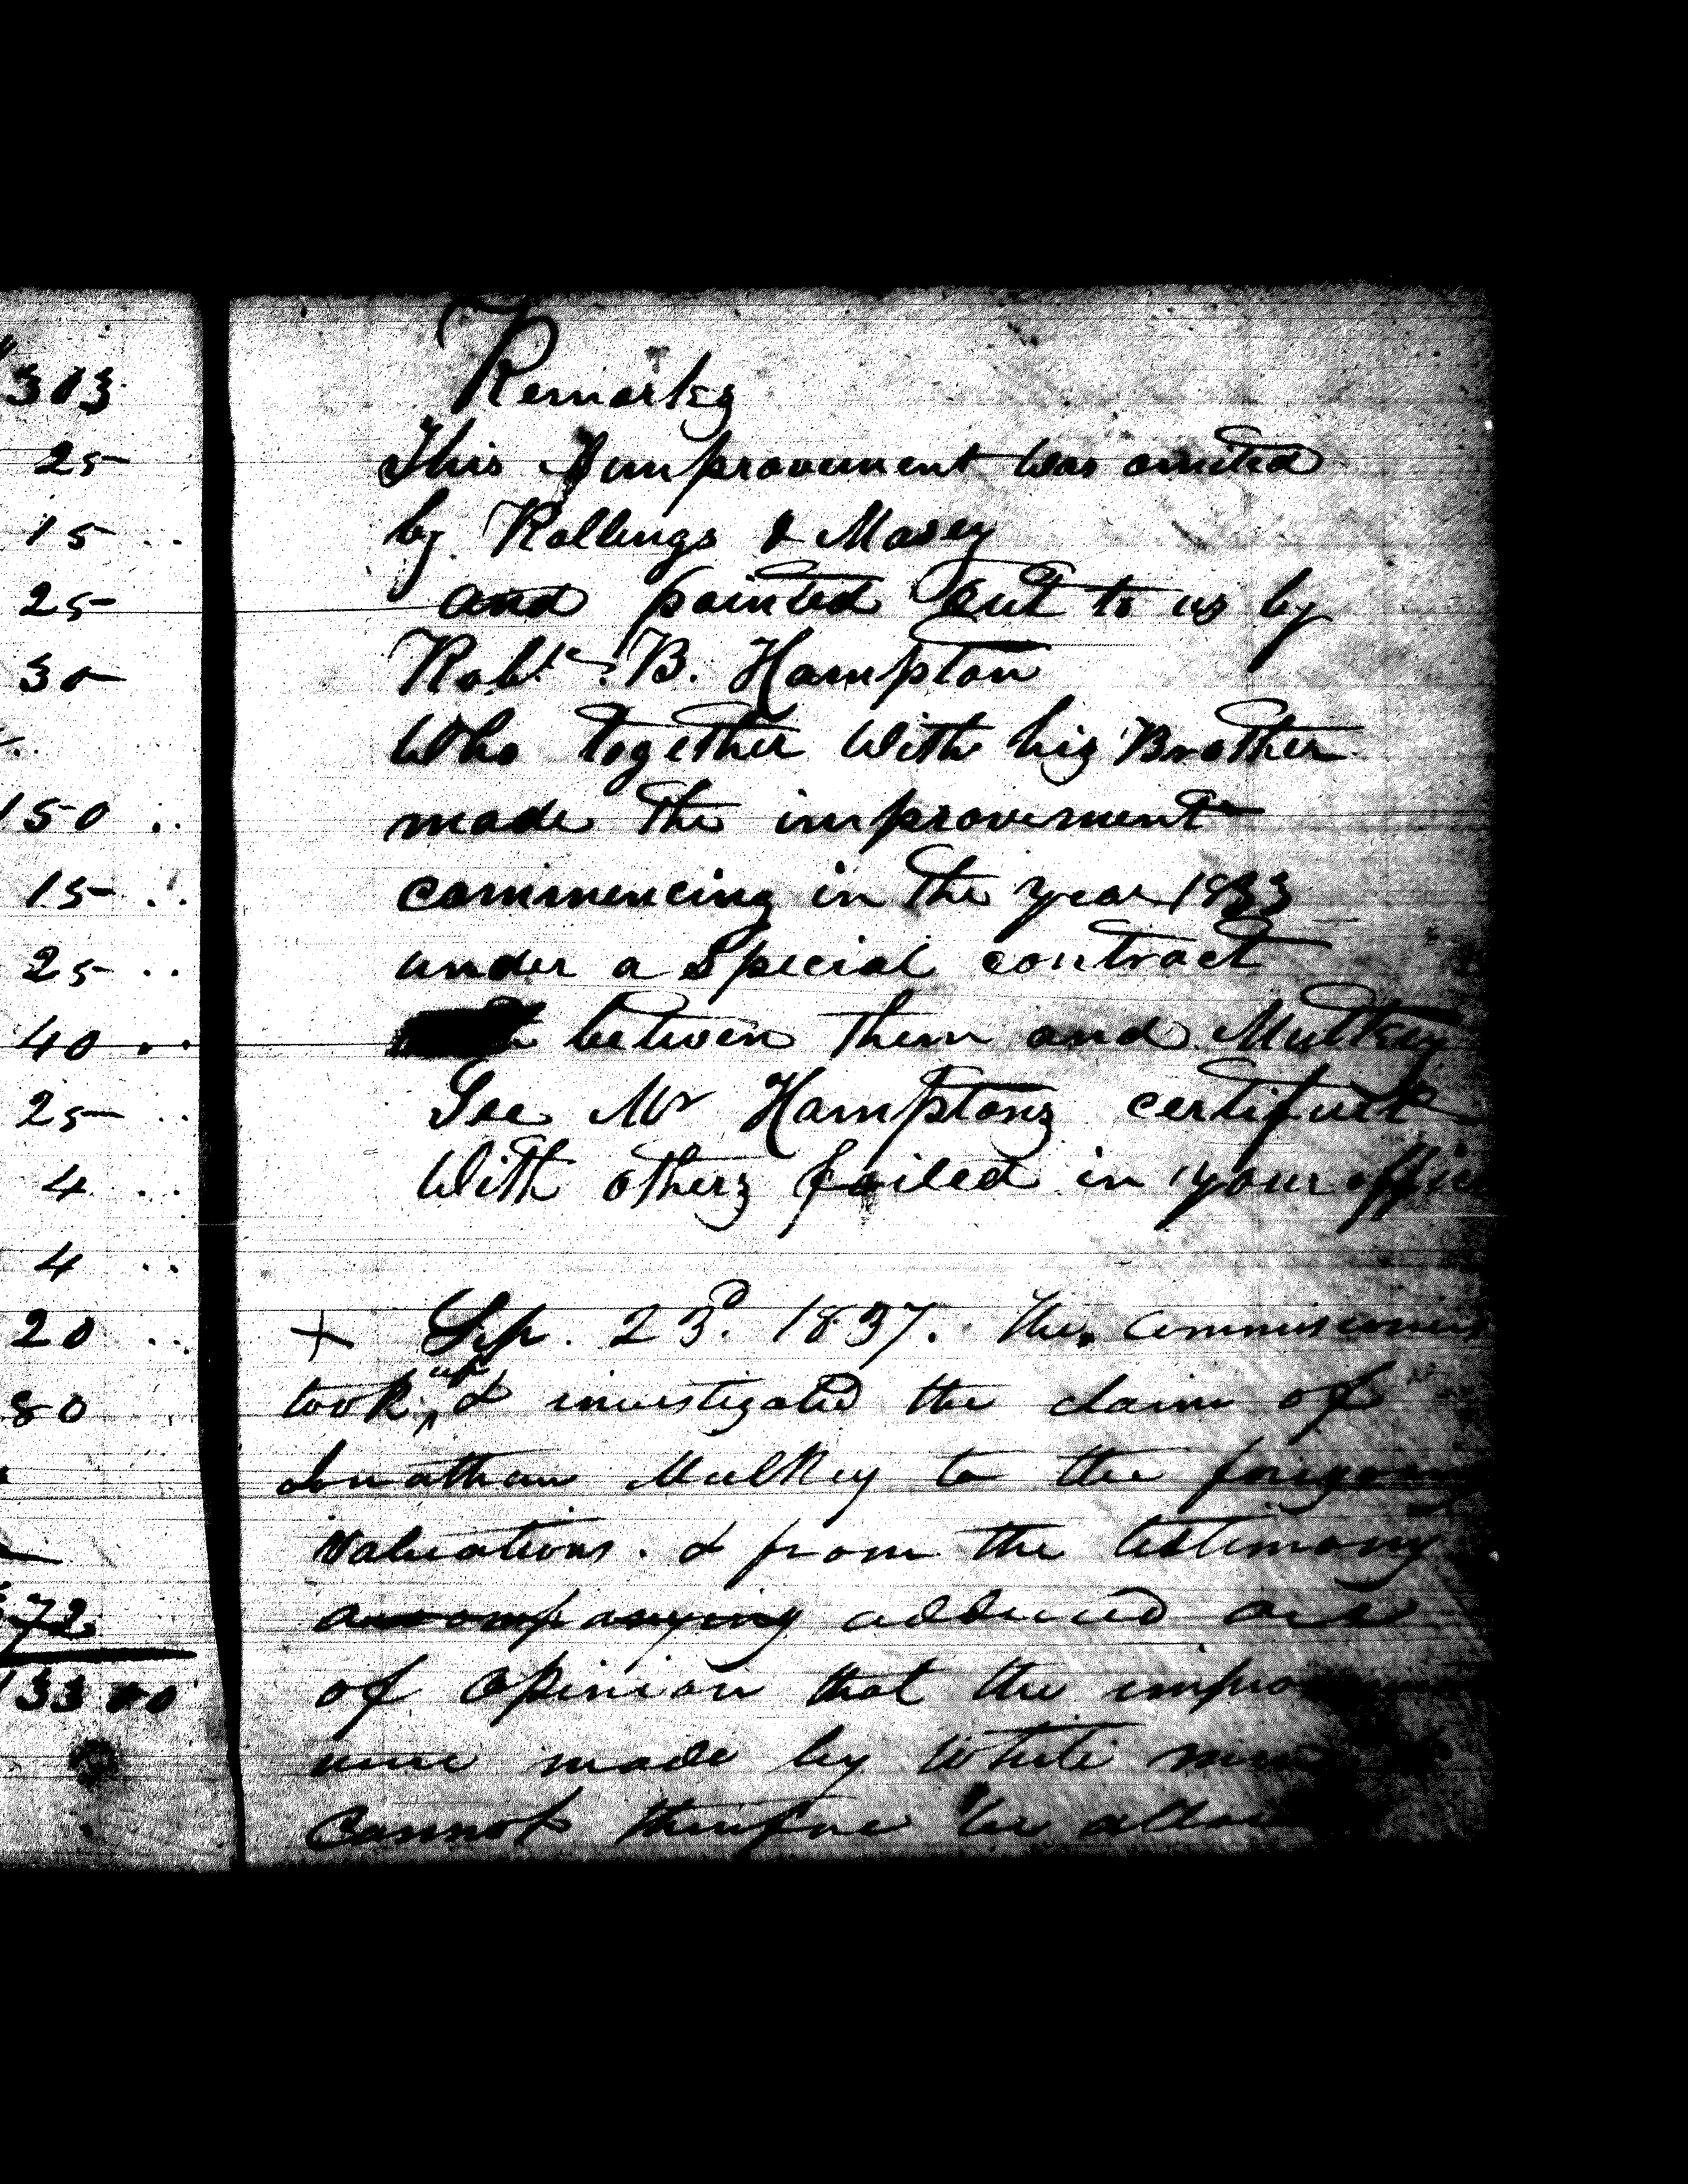 303
25
15 ..
25
30
150 ..
15 ..
25 ..
40 ..
25 ..
4 ..
4 ..
20 ..
80
72
133 00
Remarks
This Improvement was omited
by Rollings & Masey
and pointed out to us by
Robt. B. Hampton
Who together With his Brother
made the improvement
commencing in the year 1833
under a Special contract
between them and Mulkey
See Mr Hamptons certificate
With others failed in your office
+ Sep. 23d. 1837. The Commissioners
took up & investigated the claim of
Jonathan Mulkey to the
valuations. & from the testimony
accompanying adduced are
of opinion that the
were made by White
Cannot therefore be